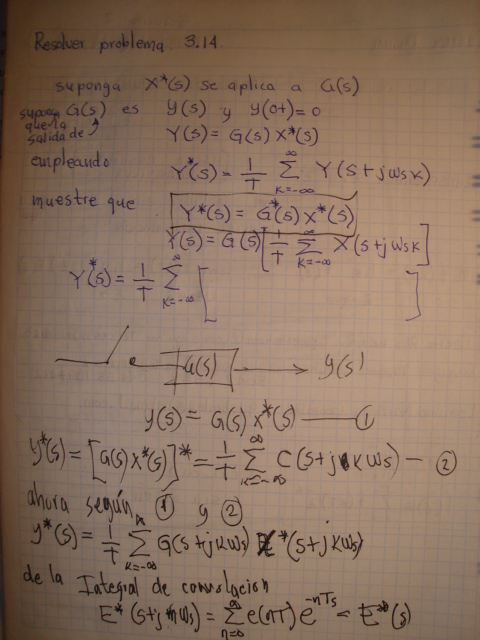 Resolver problema 3.14.
suponga X*(s) se aplica a G(s)
supon G(s) es y(s) y y(0+)=0
que la
salida de
Y(s) = G(s) X*(s)
empleando Y*(s) = 1/T ∑ K=-∞ ∞ Y(s+jωsK)
muestre que Y*(s) = G*(s) X*(s)
Y(s) = G(s) [1/T ∑ K=-∞ ∞ X(s+jωsK]
Y*(s) = 1/T ∑ K=-∞ ∞ [ ]
G(s) → y(s)
y(s) = G(s) X*(s) — ①
y*(s) = [G(s) X*(s)]* = 1/T ∑ K=-∞ ∞ C(s+jKωs) — ②
ahora según ① y ②
y*(s) = 1/T ∑ K=-∞ G(s+jKωs) E*(s+jKωs)
de la Integral de convolucion
E*(s+jnωs) = ∑ n=0 ∞ e(nT) e^-nTs = E*(s)